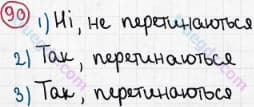 90 1) Ні, не перетинаються
2) Так, перетинаються
3) Так, перетинаються